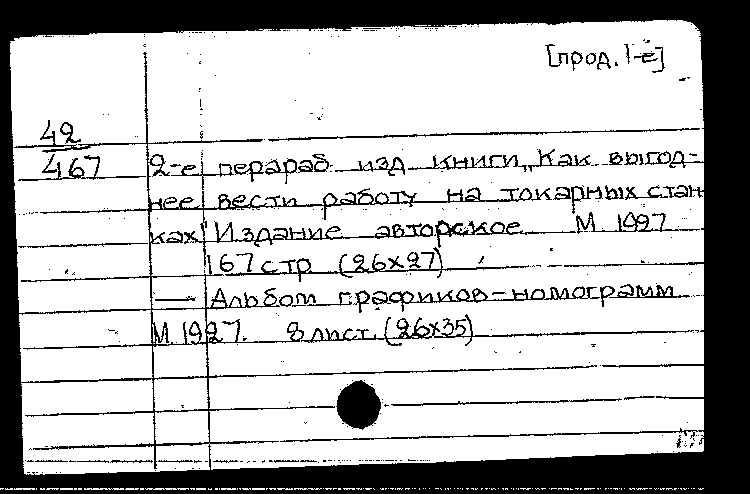 [прод. 1-е]
42
467 2-е перараб изд книги „Как выгод-
нее вести работу на токарных стан
ках" Издание авторское М. 1927
167 стр (26x27)
— Альбом графиков-номограмм
М. 1927. 8 лист. (26x35)